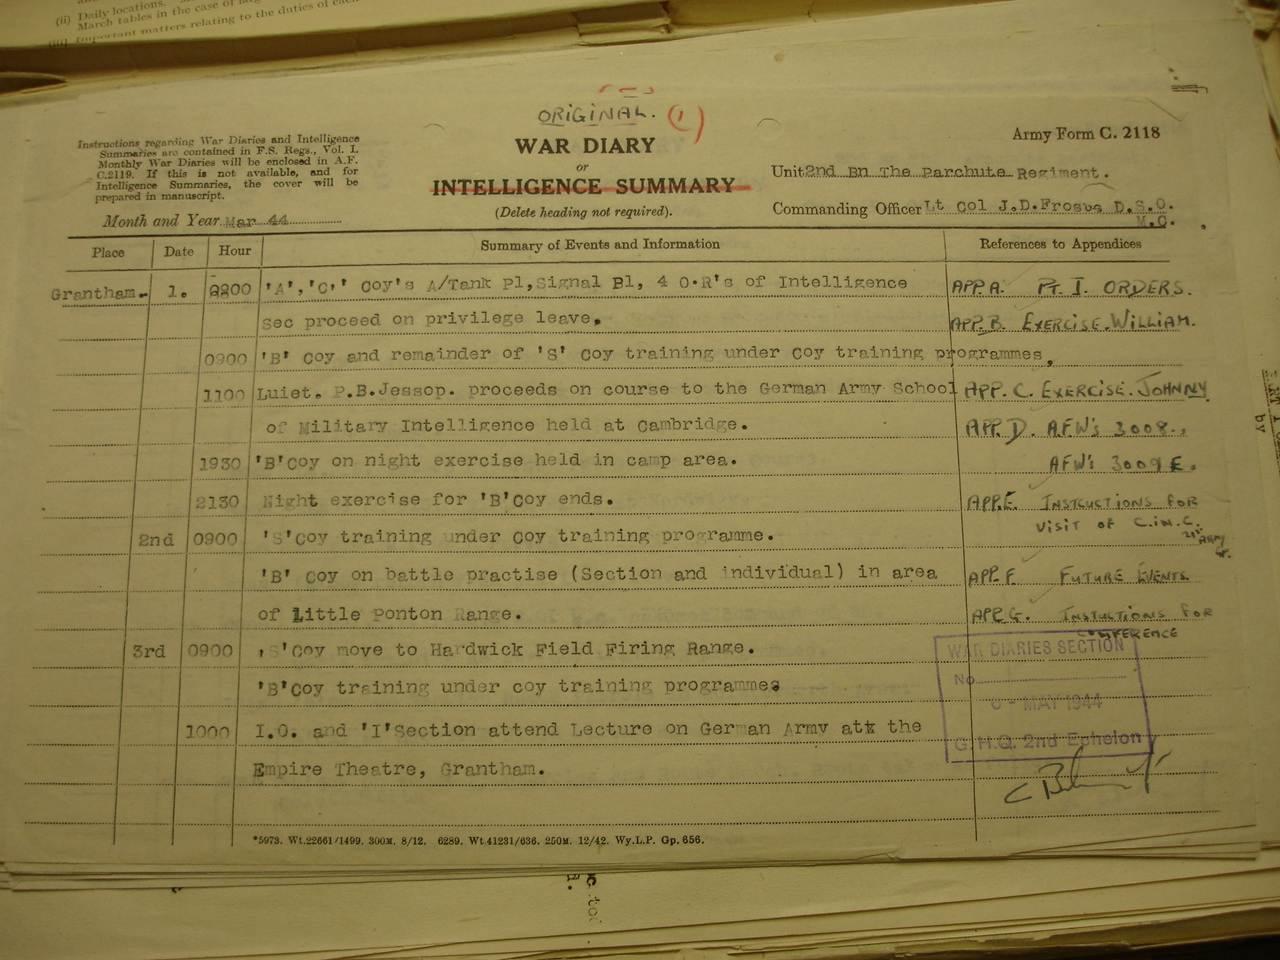 (ii) Daily locations.
March tables in the case of
(iii) Important matters relating to the duties of each
ORIGINAL. (1)
Instructions regarding War Diaries and Intelligence
Summaries are contained in F.S. Regs., Vol. I.
Monthly War Diaries will be enclosed in A.F.
C.2119. If this is not available, and for
Intelligence Summaries, the cover will be
prepared in manuscript.
Month and Year Mar 44
WAR DIARY
or
INTELLIGENCE SUMMARY
(Delete heading not required).
Army Form C. 2118
Unit 2nd Bn The Parchute Regiment.
Commanding Officer Lt Col J.D.Frosus D.S.O.
M.C.
Place Date Hour Summary of Events and Information References to Appendices
Grantham. 1. 2200 'A','C'' Coy's A/Tank Pl,Signal Bl, 4 O.R's of Intelligence APP.A. PT. I. ORDERS.
Sec proceed on privilege leave. APP.B. EXERCISE.WILLIAM.
0900 'B' Coy and remainder of 'S' Coy training under Coy training programmes.
1100 Luiet. P.B.Jessop. proceeds on course to the German Army School APP.C. EXERCISE.JOHNNY
of Military Intelligence held at Cambridge. APP.D. A.F.W's 3008.,
1930 'B'Coy on night exercise held in camp area. AFW's 3009 E.
2130 Night exercise for 'B'Coy ends. APP.E. INSTCUCTIONS FOR
VISIT OF C.IN.C.
21st ARMY
2nd 0900 'S'Coy training under Coy training programme.
'B' Coy on battle practise (Section and individual) in area APP.F. FUTURE EVENTS.
of Little Ponton Range. APP.G. INSTUCTIONS FOR
CONFERENCE
3rd 0900 'S'Coy move to Hardwick Field Firing Range.
'B'Coy training under coy training programmes
1000 I.O. and 'I'Section attend Lecture on German Army atx the
Empire Theatre, Grantham.
WAR DIARIES SECTION
No
MAY 1944
G.H.Q. 2nd Echelon
*5973. Wt.22661/1499. 300M. 8/12. 6289. Wt.41231/636. 250M. 12/42. Wy.L.P. Gp.656.